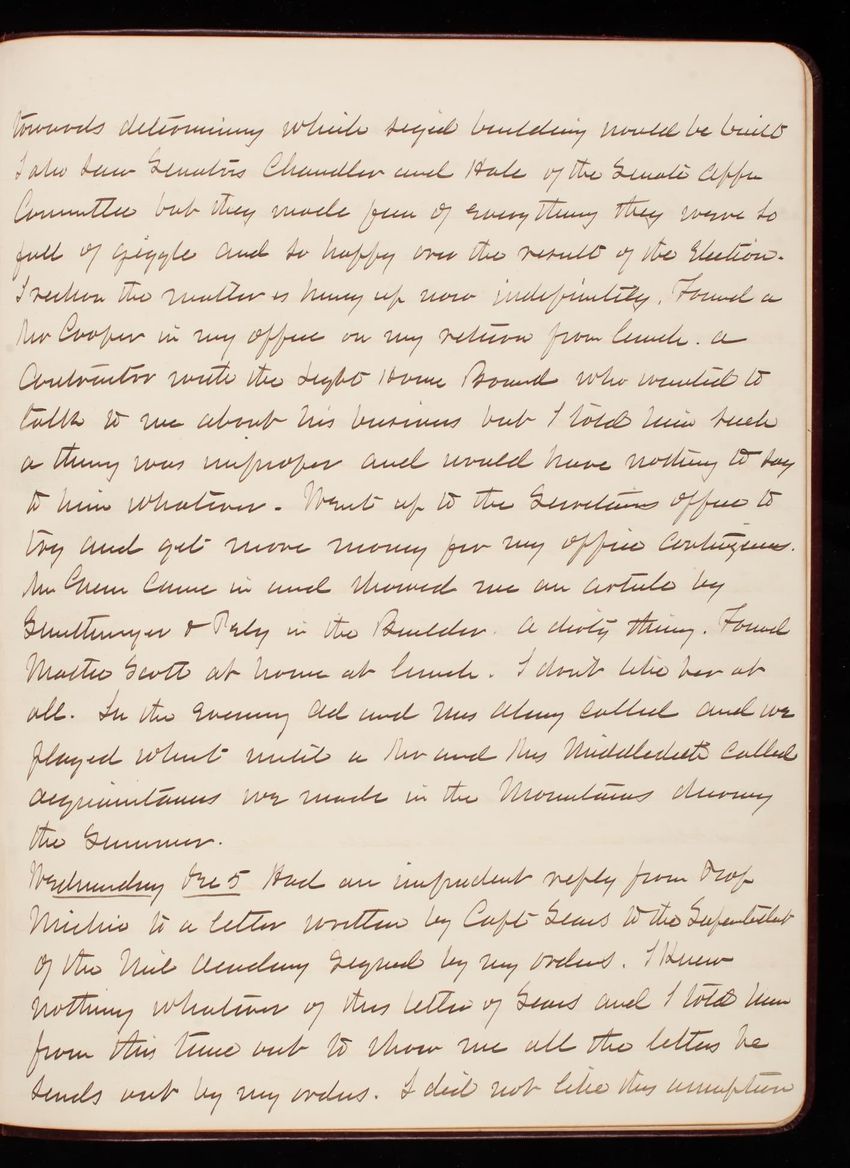 towards determining which sized building would be built
I also saw Senators Chandler and Hale of the Senate Appn
Committee but they made fun of everything they were so
full of giggle and so happy over the result of the Election.
I reckon the matter is hung up now indefinitely. Found a
Mr Cooper in my office on my return from lunch. a
Contractor with the Light House Board who wanted to
talk to me about his business but I told him such
a thing was improper and would have nothing to say
to him whatever. Went up to the Secretarys office to
try and get more money for my office contingencies.
Mr Green came in and showed me an article by
in the Builder. A dirty thing. Found
Mattie Scott at home at lunch. I don't like her at
all. In the Evening Ad and Mrs called and we
played whist until a Mr and Mrs called
acquaintances we made in the Mountains during
the Summer.
Wednesday Dec 5 Had an impudent reply from Prof
Michie to a letter written by Capt Sears to the Suptendent
of the Mil Academy signed by my orders. I knew
nothing whatever of this letter of Sears and I told him
from this time out to show me all the letters he
sends out by my orders. I did not like this assumption